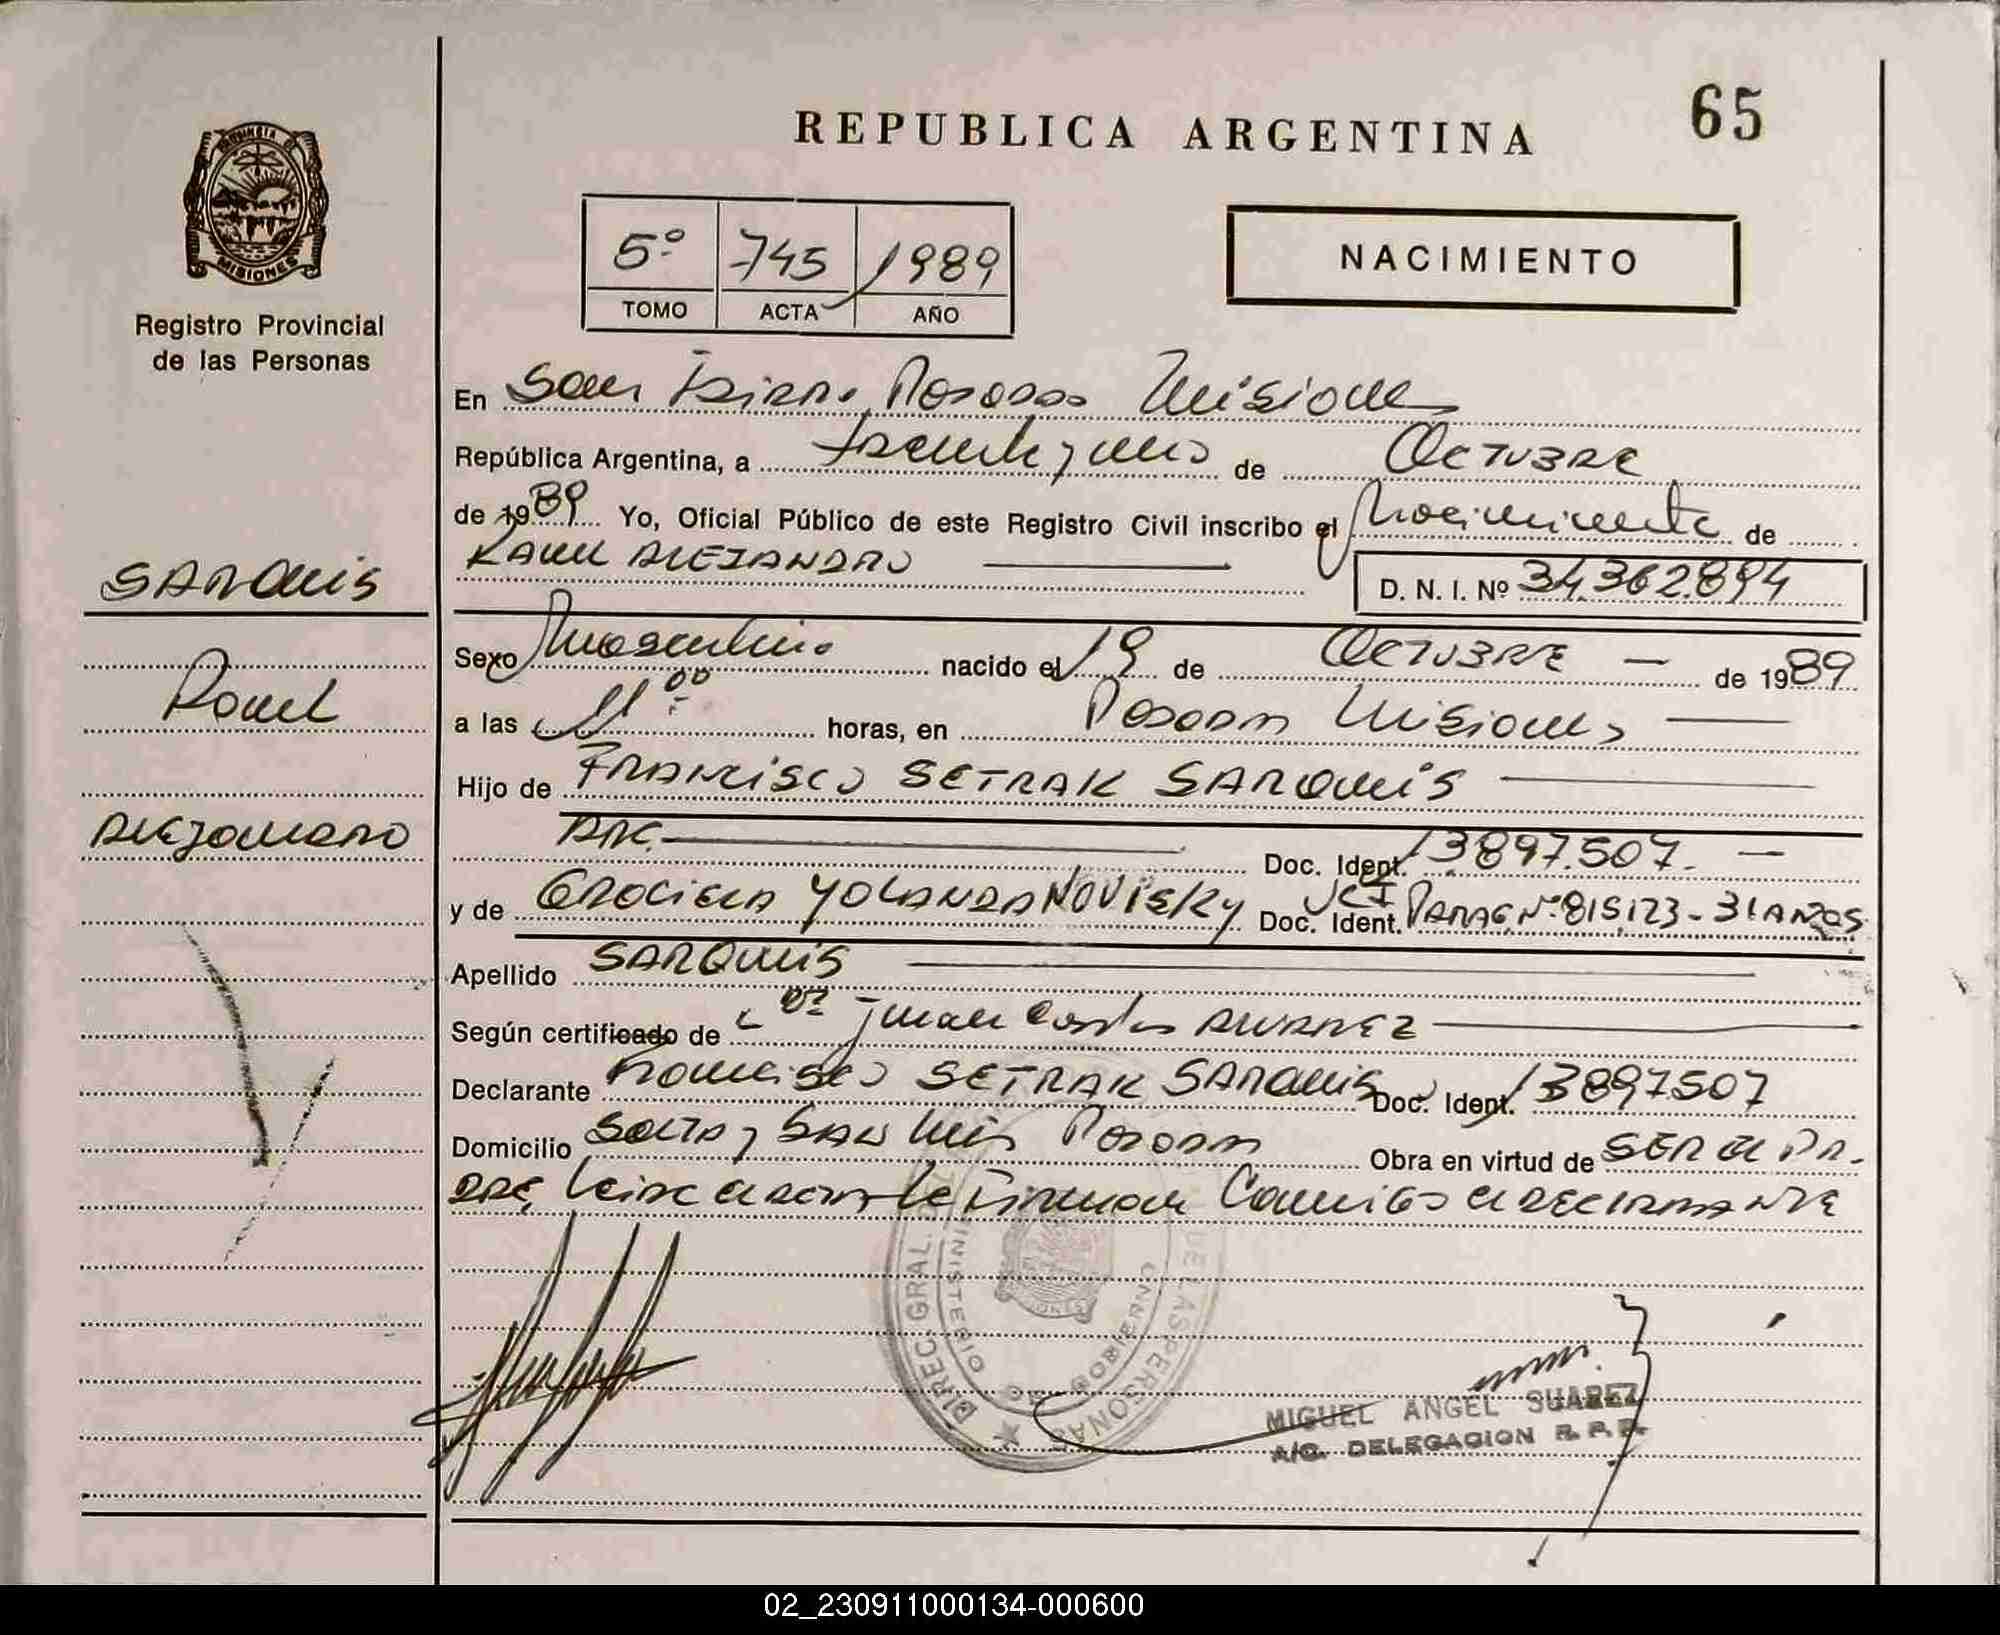 REPUBLICA ARGENTINA
65
PROVINCIA D
MISIONES
Registro Provincial
de las Personas
5º 745 1989
TOMO ACTA AÑO
NACIMIENTO
En San Isidro, Posadas Misiones
República Argentina, a treinta y uno de Octubre
de 1989 Yo, Oficial Público de este Registro Civil inscribo el Nacimiento de
RAUL ALEJANDRO
D. N. I. Nº 34.362.894
SARQUIS
Raul
Alejandro
Sexo Masculino nacido el 19 de OCTUBRE — de 1989
a las 11 00 horas, en Posadas Misiones
Hijo de FRANCISCO SETRAK SARQUIS
Doc. Ident. 13897.507. —
y de GRACIELA YOLANDA NOVISKY Doc. Ident. C I PARAG Nº 815,123 - 31 AÑOS
Apellido SARQUIS
Según certificado de Juan Carlos ALVAREZ
Declarante Francisco SETRAK SARQUIS Doc. Ident. 13897507
Domicilio Salta y San Luis Posadas Obra en virtud de SER EL PA-
DRE, Leida el acta la Firman Conmigo el DECLARANTE
DIREC. GRAL. DE LAS PERSONAS
MINISTERIO DE GOBIERNO
MIGUEL ANGEL SUAREZ
A/C. DELEGACION R. P. P.
02_230911000134-000600